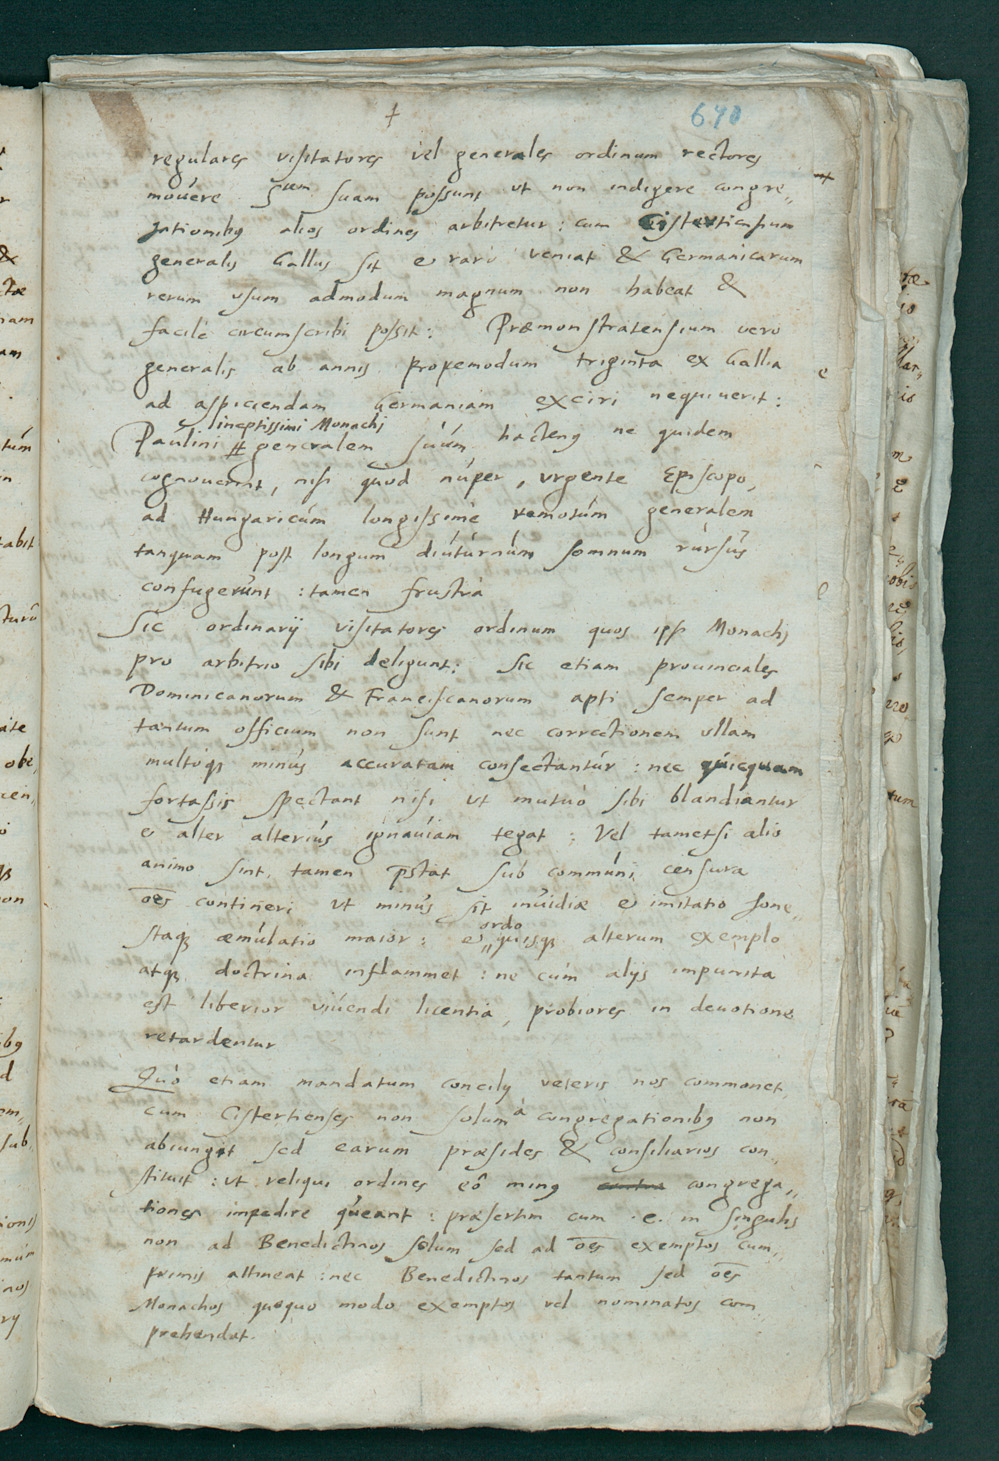 +
640
regulares visitatores vel generales ordinum rectores
mouere suam possunt ut non indigere congre„
gationibq alios ordines arbitretur : cum Cistertiensium
generalis Gallus sit & raro veniat & Germanicarum
rerum usum admodum magnum non habeat &
facile circumscribi possit : Præmonstratensium vero
generalis ab annis propemodum triginta ex Gallia
ad aspiciendam Germaniam exciri nequiuerit :
ineptissimi Monachi
Paulini # generalem suum hactenq ne quidem
cognouerint, nisi quod nuper, urgente Episcopo,
ad Hungaricum longissime remotum generalem
tanquam post longum diuturnum somnum rursus
confugerunt : tamen frustra
Sic ordinarij visitatores ordinum quos ipsi Monachi
pro arbitrio sibi deligunt : sic etiam prouinciales
Dominicanorum & Franciscanorum apti semper ad
tantum officium non sunt nec correctionem ullam
multoq minus accuratam consectantur : nec quicquam
fortassis spectant nisi ut mutuo sibi blandiantur
& alter alterius ignauiam tegat : Vel tametsi alio
animo sint, tamen p̄stat sub communi censura
oēs contineri ut minus sit inuidiæ & imitatio hone„
staq æmulatio maior : & quisq alterum exemplo
ordo
atq doctrina inflammet : ne cum alijs impunita
est liberior viuendi licentia, probiores in deuotione
retardentur
Quo etiam mandatum concilij veteris nos commonet
cum Cistertienses non solum a congregationibq non
abiungit sed earum præsides & consiliarios con„
stituit : ut reliqui ordines eō minq congrega„
tiones impedire queant : præsertim cum .c. in singulis
non ad Benedictinos solum sed ad oēs exemptos cum„
primis attineat : nec Benedictinos tantum sed oēs
Monachos quoquo modo exemptos vel nominatos com„
prehendat.